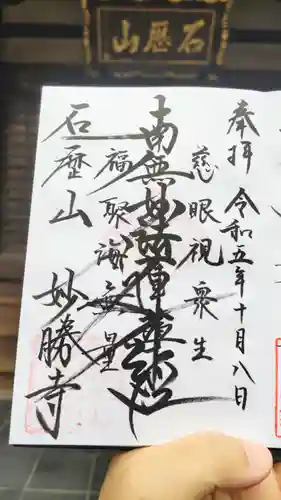 石歴山
奉拝 令和五年十月八日
慈眼視衆生
南無妙法蓮華経
福聚海無量
石歴山
妙勝寺